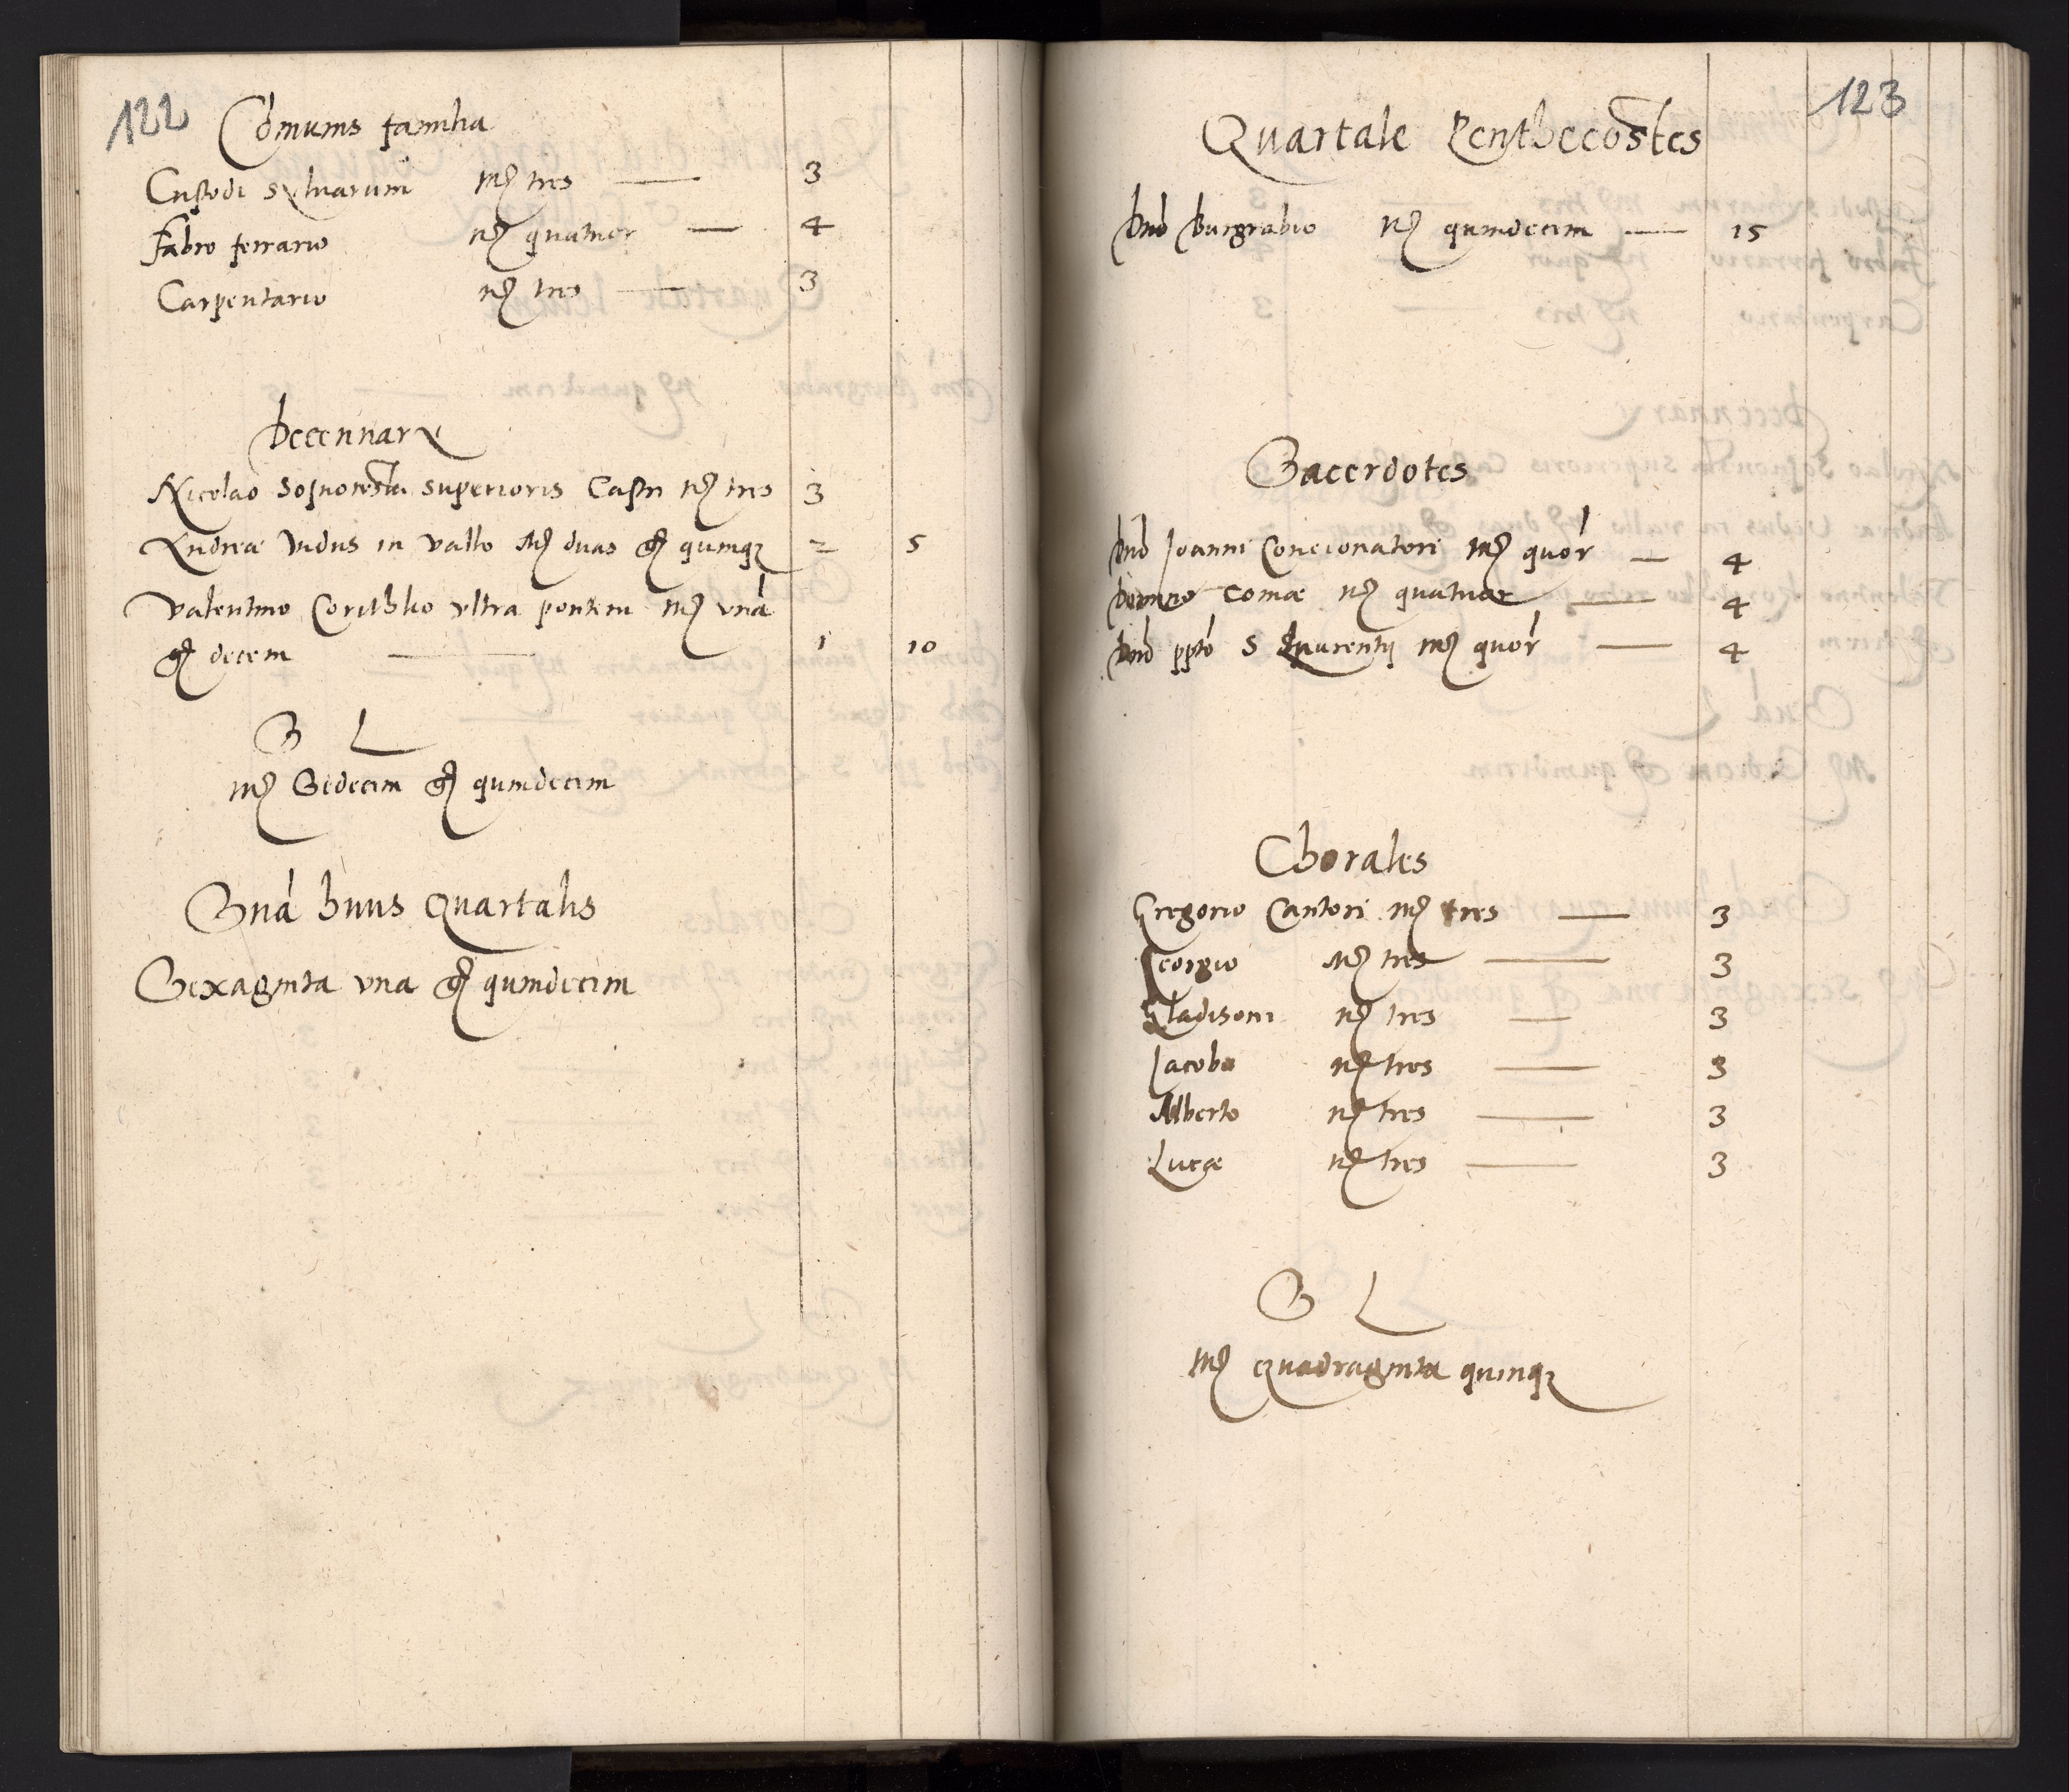 122
Com̄unis familia
Custodi Sylvarum mꝝ tres — 3
Fabro ferrario mꝝ quatuor — 4
Carpentario mꝝ tres — 3
Decennarÿ
Nicolao superioris Castri mꝝ tres 3
Andreæ Vidus in Vallo mꝝ duas gꝝ quinqꝫ 2 5
Valentino ultra pontem mꝝ vnā
gꝝ decem — 1 10
S L
mꝝ Sedecim gꝝ quindecim
Sūā huius Quartalis
Sexaginta vna gꝝ quindecim
123
Quartale Penthecostes
Dnō Burgrabio mꝝ quindecim — 15
Sacerdotes
Dnō Joanni Concionatori mꝝ quōr — 4
Domino Comæ mꝝ quatuor — 4
Dnō ppto S Laurentij mꝝ quōr — 4
Chorales
Gregorio Cantori mꝝ tres — 3
Georgio mꝝ tres — 3
mꝝ tres — 3
Jacobo mꝝ tres — 3
Alberto mꝝ tres — 3
Lucæ mꝝ tres — 3
S L
mꝝ Quadraginta quinqꝫ